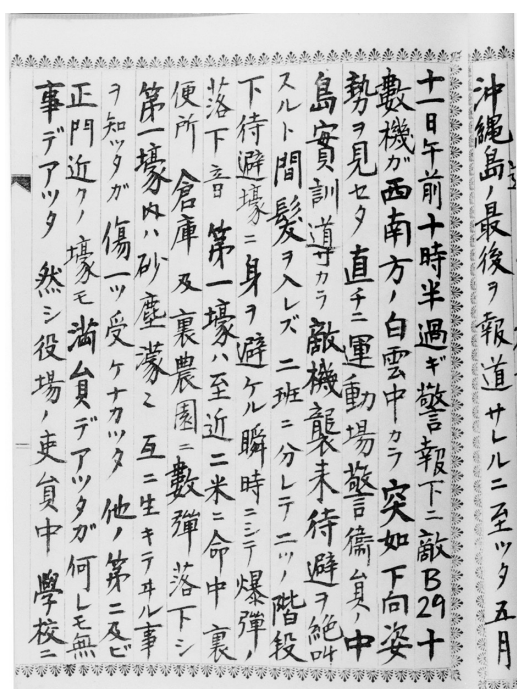 沖縄島ノ最後ヲ報道サレルニ至ッタ五月
十一日午前十時半過ギ警報下ニ敵B29十
數機ガ西南方ノ白雲中カラ突如下向姿
勢ヲ見セタ 直チニ運動場警備員ノ中
島實訓導カラ敵機襲来待避ヲ絶叫
スルト間髪ヲ入レズ 二班ニ分レテ二ツノ階段
下待避壕ニ身ヲ避ケル瞬時ニシテ爆弾ノ
落下音 第一壕ハ至近二米ニ命中 裏
便所 倉庫 及裏農園ニ數弾落下シ
第一壕内ハ砂塵濛々 互ニ生キテヰル事
ヲ知ッタガ 傷一ツ受ケナカッタ 他ノ第二及ビ
正門近クノ壕モ満員デアッタガ何レモ無
事デアッタ 然シ役場ノ吏員中 學校ニ